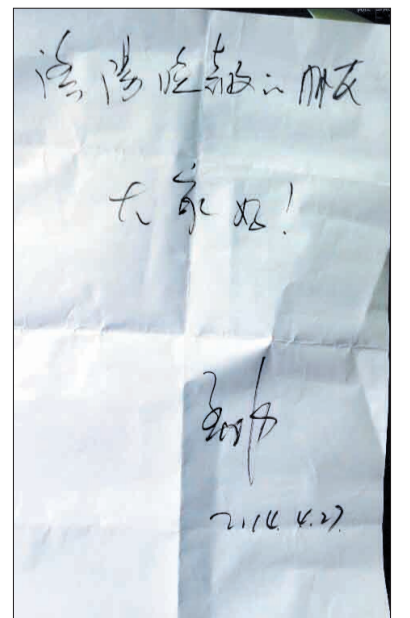 瀋陽晚報的朋友
大家好!
2014.4.27.